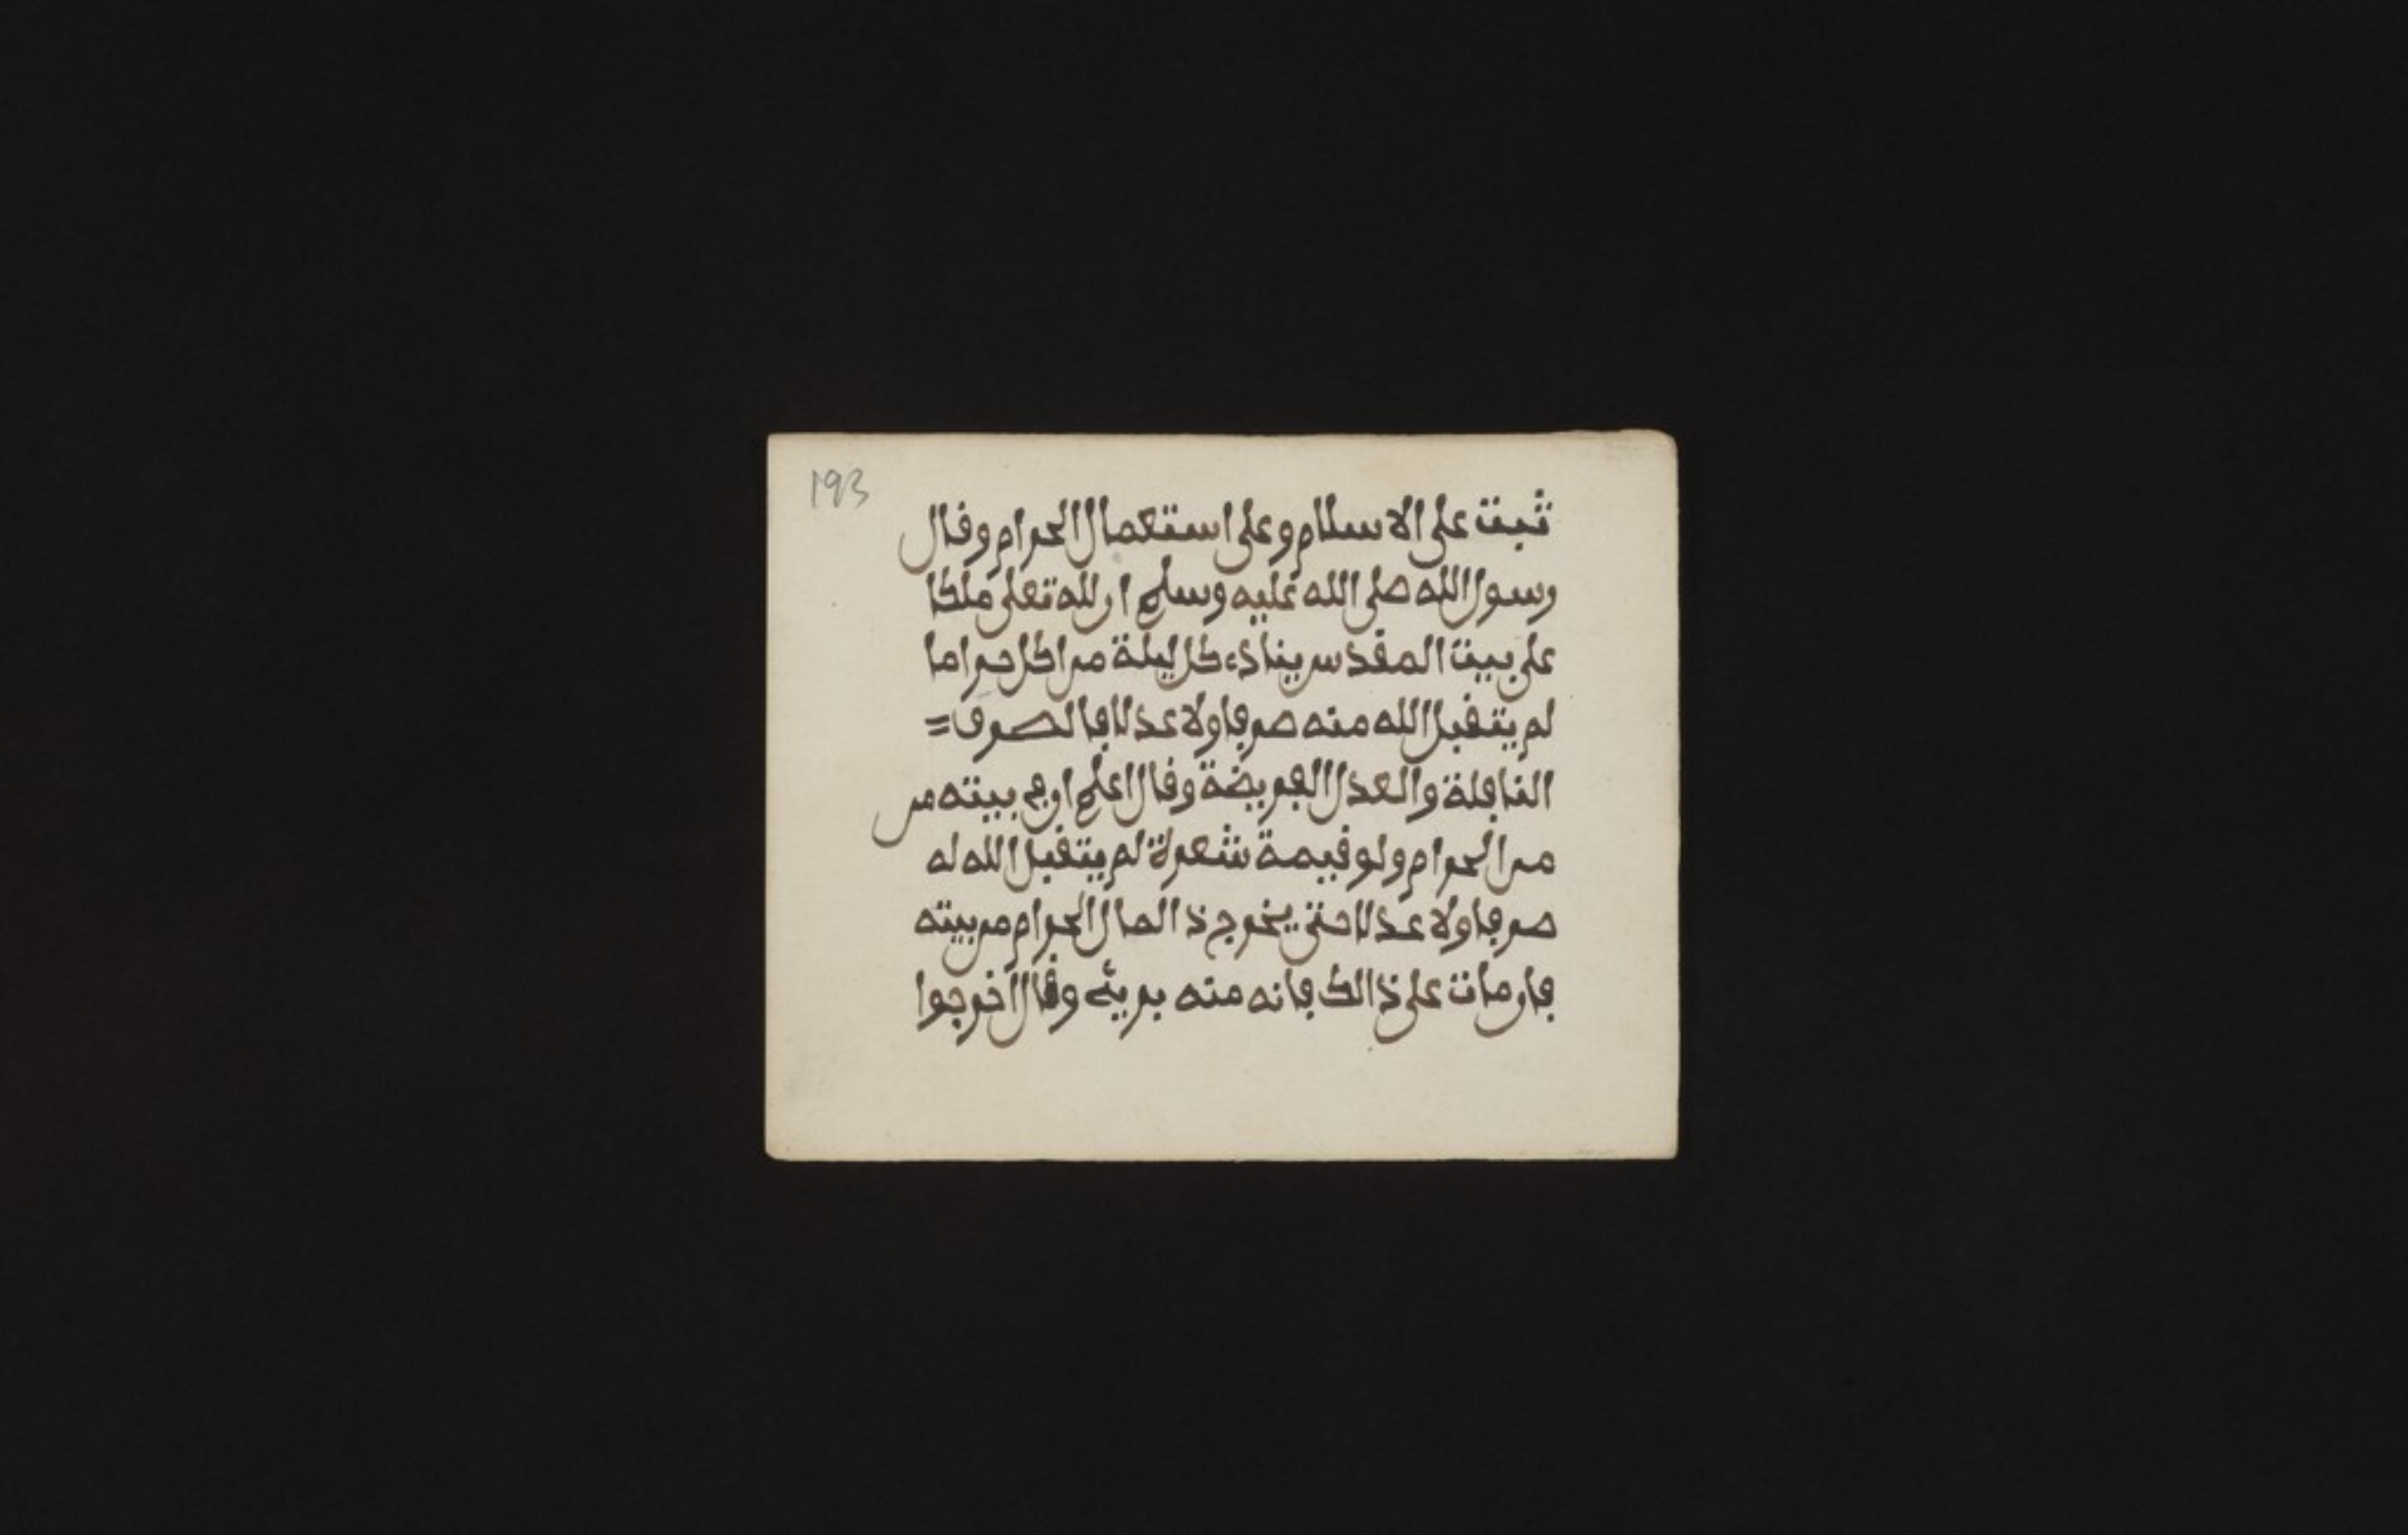 193
ثبت على الاسلام وعلى استعمال الحرام وقال
رسول الله صلى الله عليه وسلم ان لله تعلى ملكا
على بيت المقدس ينادي كل ليلة من اكل حراما
لم يتقبل الله منه صرفا ولا عدلا فالصرف =
النافلة والعدل الفريضة وقال اعلم ان في بيته من
من الحرام ولو قيمة شعرة لم يتقبل الله له
صرفا ولا عدلا حتى يخرج ذا المال الحرام من بيته
فان مات على ذالك فانه منه بريئ وقال اخرجوا